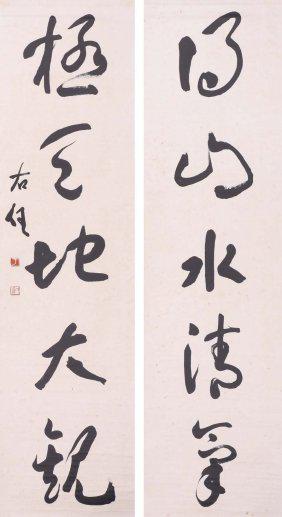 得山水清氣
極天地大觀
右任